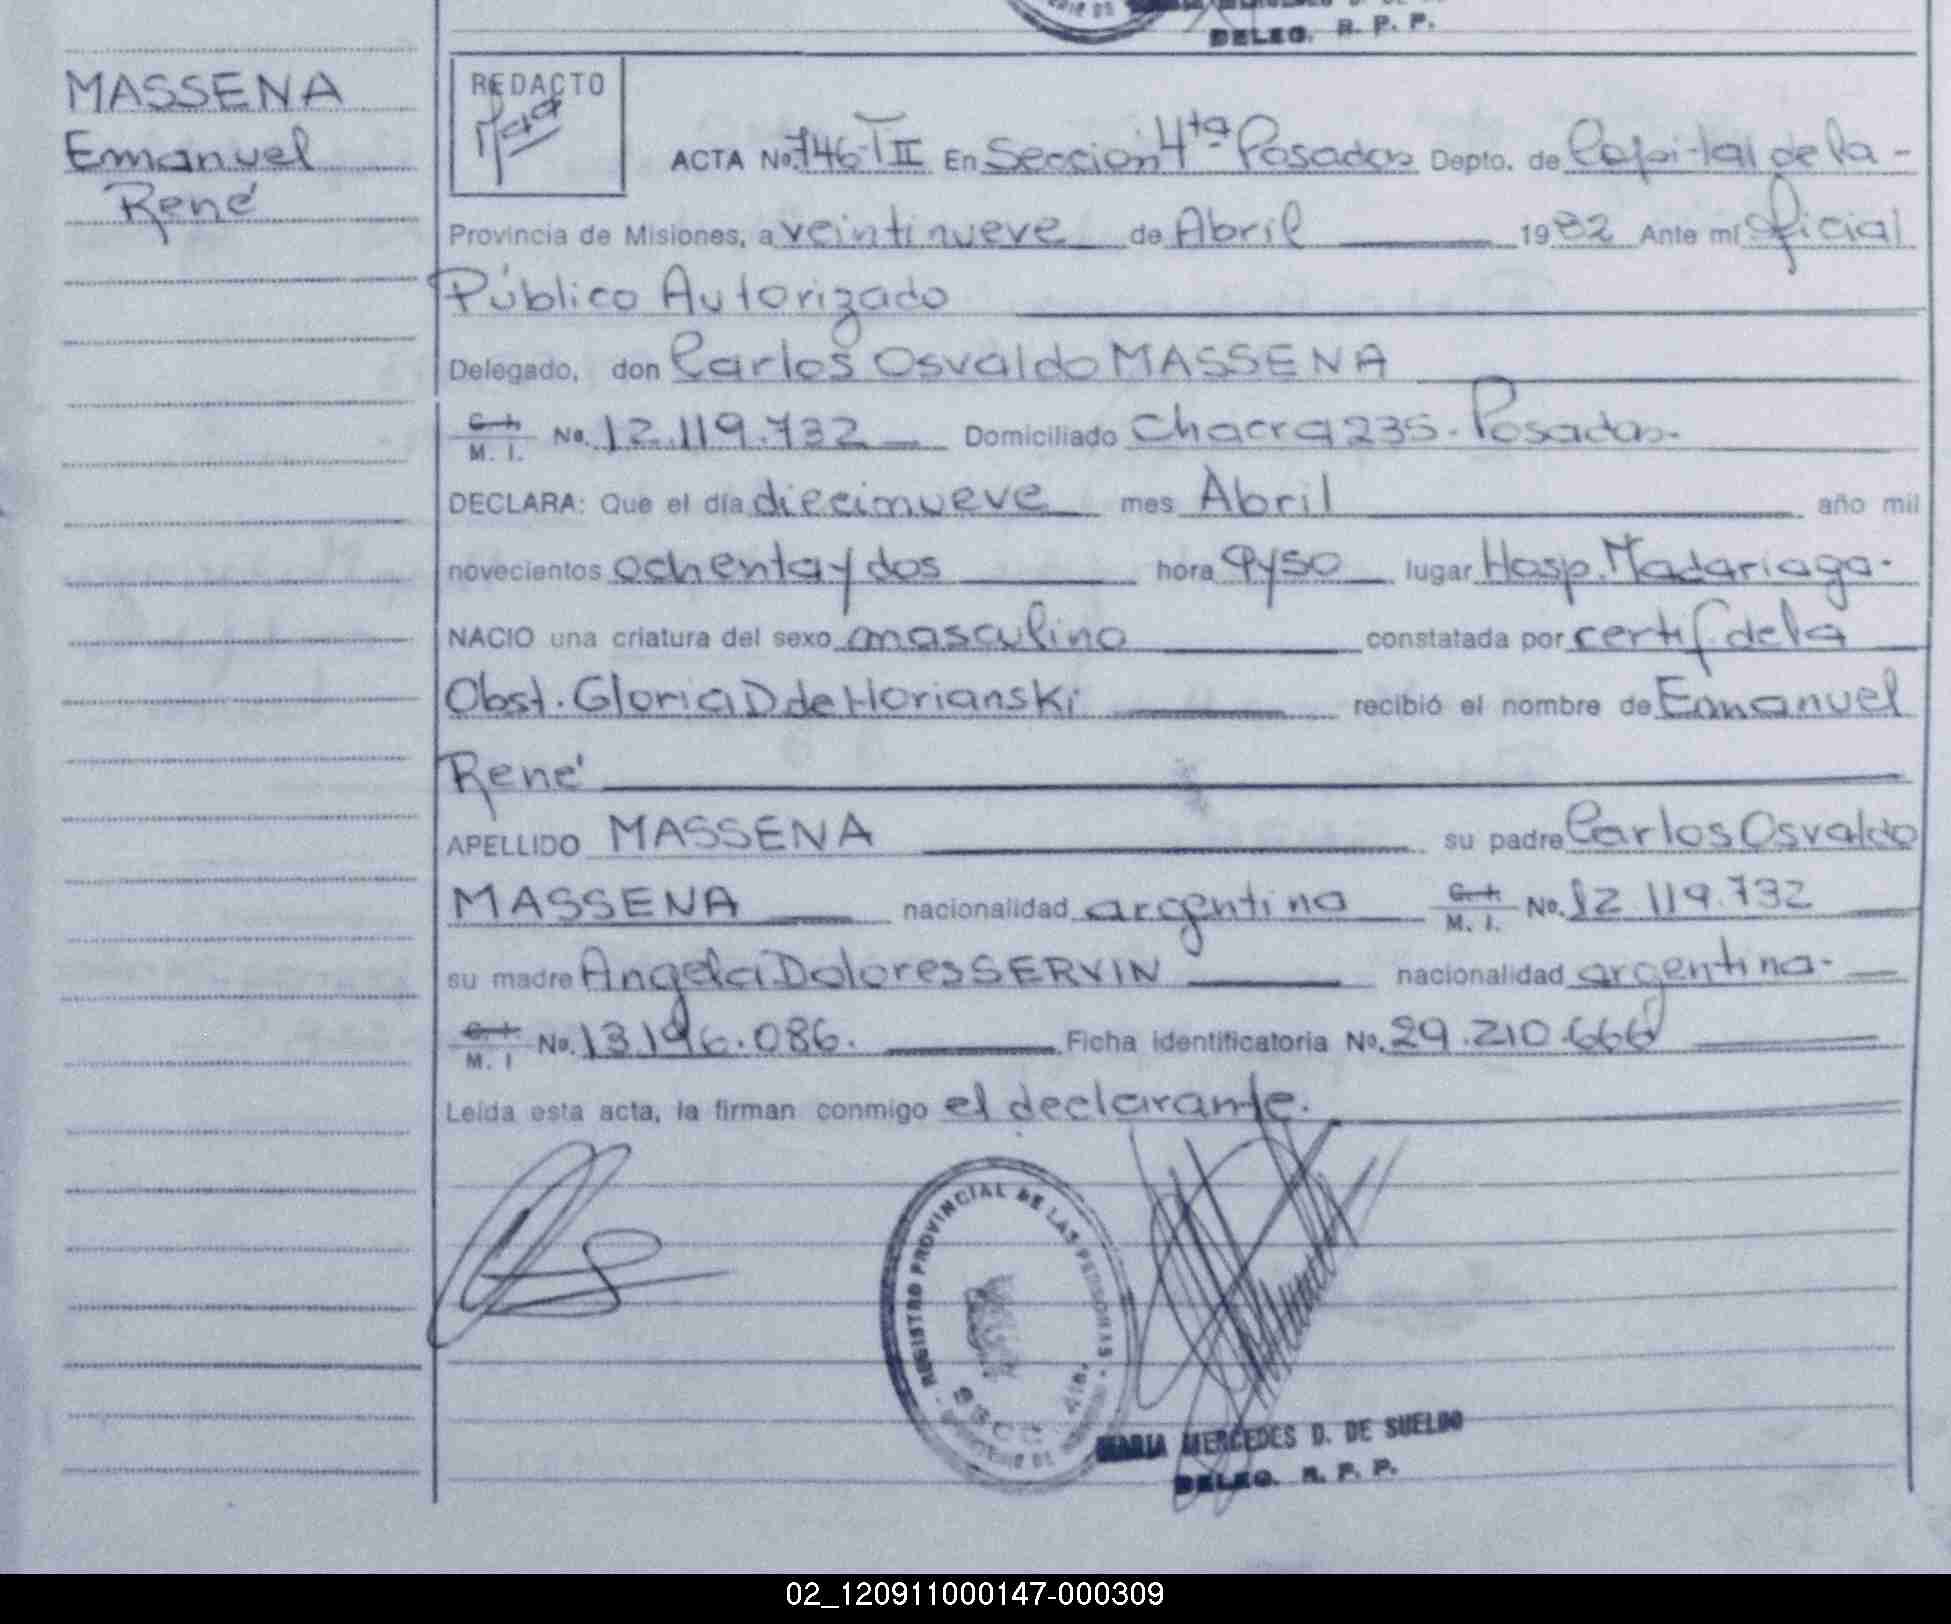 DELEG. R. P. P.
MASSENA
Emanuel
René
REDACTO
ACTA No. 746-TII En Sección 4ta Posadas Depto. de Capital de la -
Provincia de Misiones, a veintinueve de Abril 1982 Ante mí Oficial
Público Autorizado
Delegado, don Carlos Osvaldo MASSENA
C. I. / M. I. No. 12.119.732 Domiciliado Chacra 235. Posadas.
DECLARA: Que el día diecinueve mes Abril año mil
novecientos ochenta y dos hora 9y50 lugar Hosp. Madariaga.
NACIO una criatura del sexo masculino constatada por certif. de la
Obst. Gloria D de Horianski recibió el nombre de Emanuel
René
APELLIDO MASSENA su padre Carlos Osvaldo
MASSENA nacionalidad argentina C. I. / M. I. No. 12.119.732
su madre Angela Dolores SERVIN nacionalidad argentina.
C. I. / M. I No. 13.196.086. Ficha identificatoria No. 29.210.666
Leída esta acta, la firman conmigo el declarante.
REGISTRO PROVINCIAL DE LAS PERSONAS
MARIA MERCEDES D. DE SUELDO
DELEG. R. P. P.
02_120911000147-000309